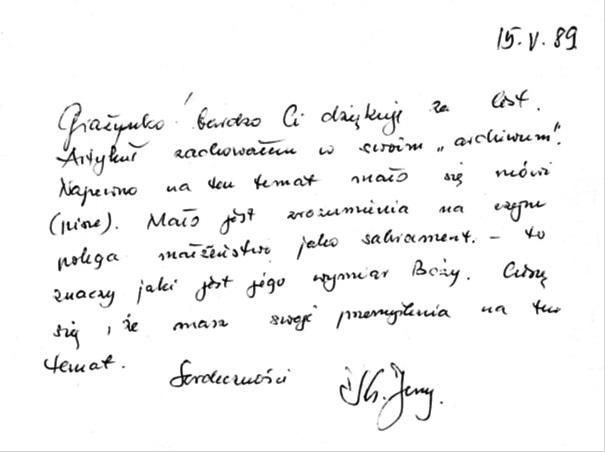 15.V.89
Grażynko! bardzo Ci dziękuję za list.
Artykuł zachowałem w swoim "archiwum".
Napewno na ten temat mało się mówi
(pisze). Mało jest zrozumienia na czym
polega małżeństwo jako sakrament. – to
znaczy jaki jest jego wymiar Boży. Cieszę
się, że masz swoje przemyślenia na ten
temat.
Serdeczności Ks. Jerzy.